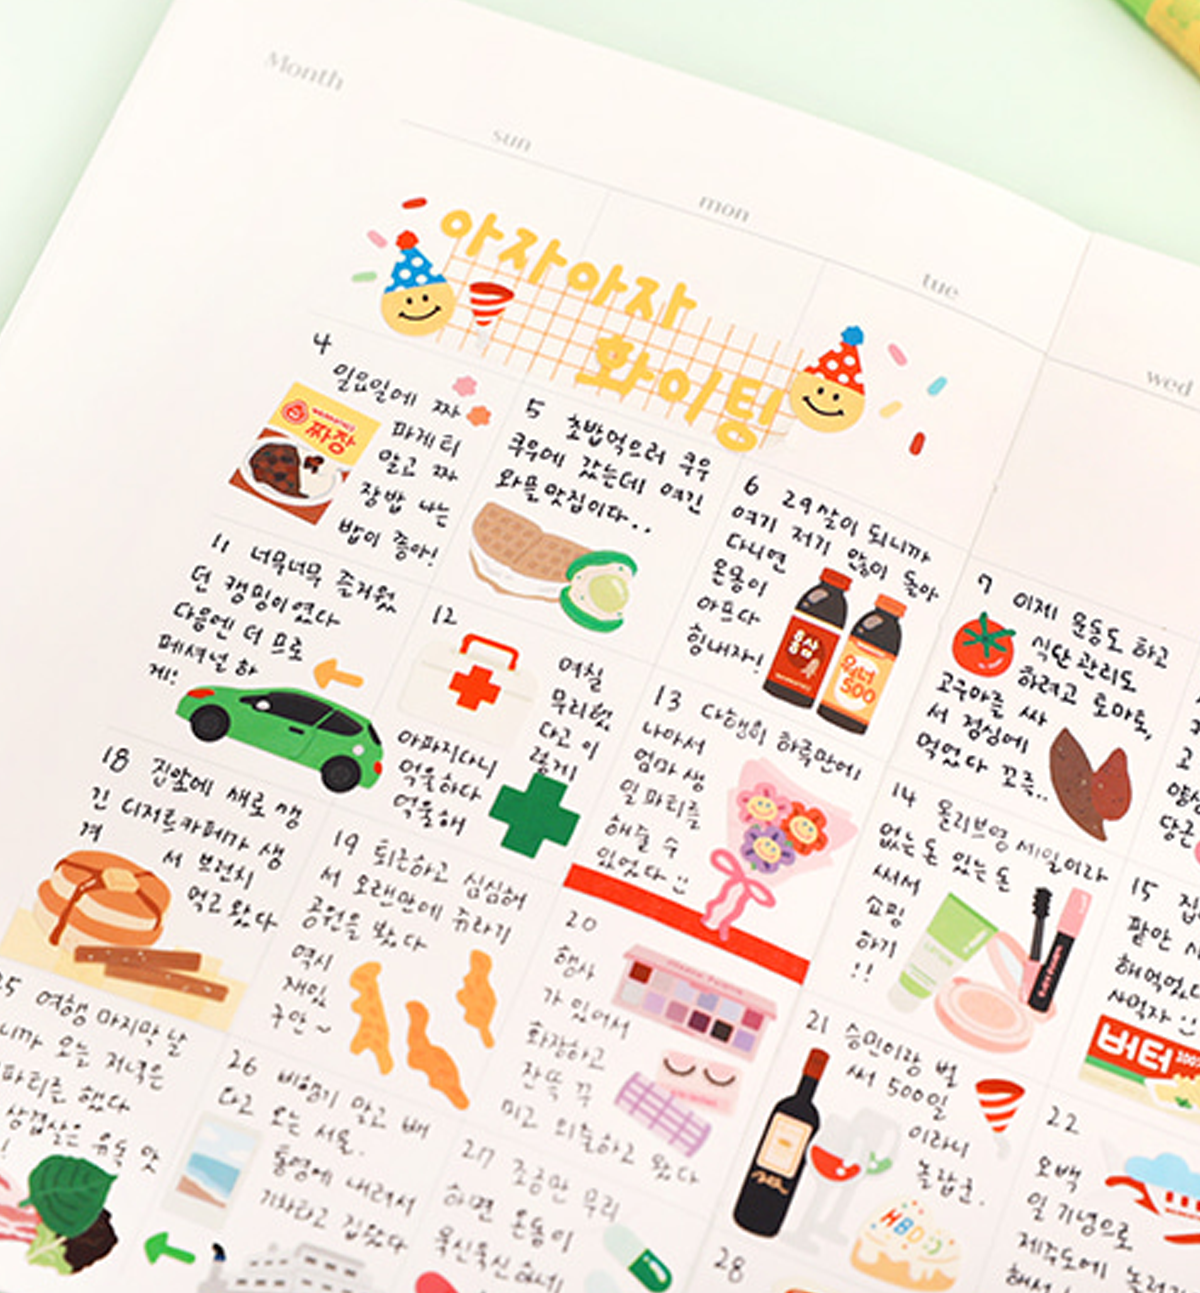 Month
sun
mon
tue
wed
아자아자
화이팅
4
일요일에 짜
파게티
말고 짜
장밥 나는
밥이 좋아!
짜장
5 초밥먹으러 쿠우
쿠우에 갔는데 여긴
와플맛집이다..
6 29살이 되니까
여기 저기 많이 돌아
다니면
온몸이
아프다
힘내자!
홍삼
500
7 이제 운동도 하고
식단 관리도
하려고 토마토,
고구마를 싸
서 점심에
먹었다 꼬륵..
11 너무너무 즐거웠
던 캠핑이였다
다음엔 더 프로
페셔널 하
게!
12
며칠
무리했
다고 이
렇게
아파지다니
억울하다
억울해
13 다행히 하룻만에
나아서
엄마 생
일 파티를
해줄 수
있었다
14 올리브영 세일이라
없는돈 있는돈
써서
쇼핑
하기
!!
15
팥만
해먹었다
사먹자
버터
100%
18 집앞에 새로 생
긴 디저트카페가 생
겨
서 브런치
먹고왔다
19 퇴근하고 심심해
서 오랜만에 쥬라기
공원을 봤다
역시
재밌
구만~
20
행사
가 있어서
화장하고
잔뜩 꾸
미고 외출하고 왔다
21 승민이랑 벌
써 500일
이라니
놀랍군.
HBD
22
오백
일 기념으로
제주도에 놀러
25 여행 마지막 날
니까 오늘 저녁은
파티를 했다
삼겹살은 육똑 맛
26 비행기 말고 배
타고 오는 서울.
통영에 내려서
기차타고 집왔다
27 조금만 무리
하면 온몸이
욱신욱신하네
28